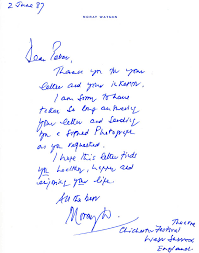 2 June 87
MORAY WATSON
Dear Peter,
Thank you for your
letter and your interest.
I am sorry to have
taken so long answering
your letter and sending
you a signed Photograph
as you requested.
I hope this letter finds
you healthy, happy and
enjoying your life.
All the best
Moray W.
Theatre
Chichester Festival
West Sussex
England